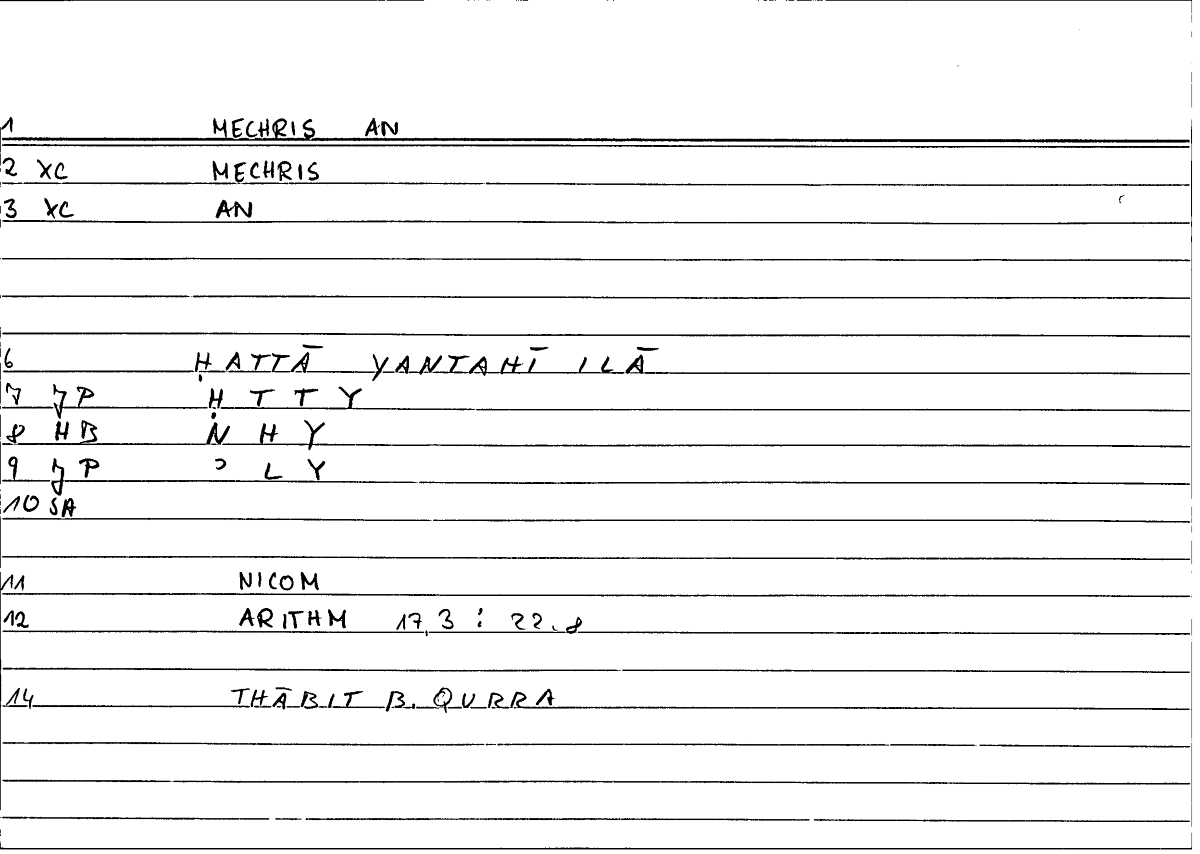 1 MECHRIS AN
2 XC MECHRIS
3 XC AN
6 ḤATTĀ YANTAHĪ ILĀ
7 JP Ḥ T T Y
8 HB N H Y
9 JP ʾ L Y
10 SA
11 NICOM
12 ARITHM 17,3 : 22.8
14 THĀBIT B. QURRA